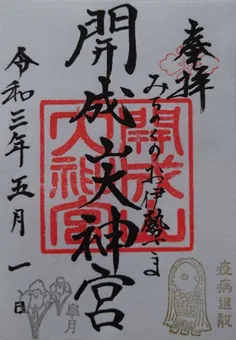 奉拝
みちのくのお伊勢さま
開成山大神宮
令和三年五月一日
開成山大神宮
疫病退散
皐月